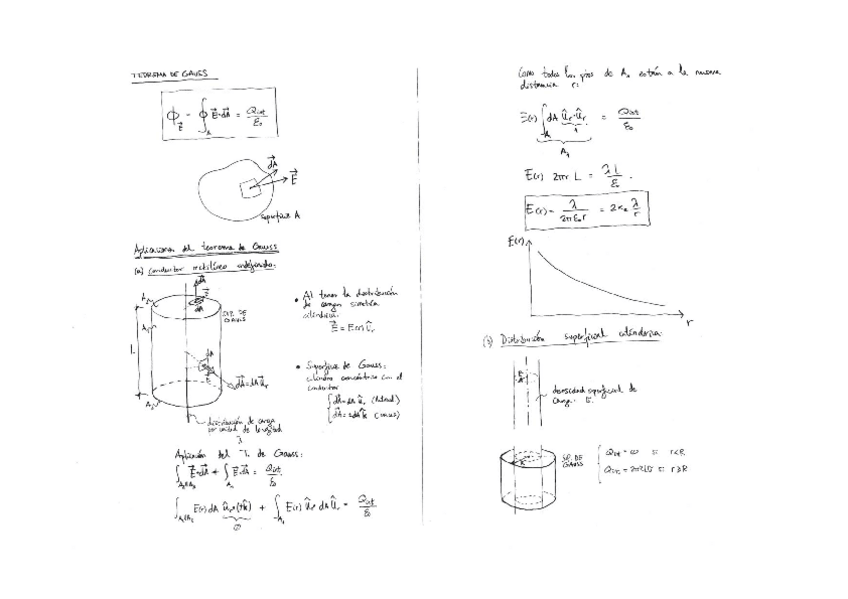 TEOREMA DE GAUSS
Φ_E⃗ = ∮_A E⃗·dA⃗ = Qint/ε₀
dA⃗
E⃗
Superficie A
Aplicaciones del teorema de Gauss
(a) Conductor rectilíneo indefinido.
dA⃗
A₂
dA
SUP. DE
GAUSS
A₁
L
dA⃗ = dA û_r
A₃
distribución de carga
por unidad de longitud
λ
• Al tener la distribución
de carga simetría
cilíndrica.
E⃗ = E(r) û_r
• Superficie de Gauss:
cilindro concéntrico con el
conductor
dA⃗ = dA û_r (lateral)
Aplicación del T. de Gauss:
∫_A₂,A₃ E⃗·dA⃗ + ∫_A₁ E⃗·dA⃗ = Qint/ε₀
∫_A₂,A₃ E(r) dA û_r·(±k̂) + ∫_A₁ E(r) û_r dA û_r = Qint/ε₀
0
Como todos los ptos de A₁ están a la misma
distancia r:
E(r) ∫_A₁ dA û_r·û_r = Qint/ε₀
1
A₁
E(r) 2πr L = λL/ε₀.
E(r) = λ/2πε₀r = 2Kₑ λ/r
E(r)
r
Distribución superficial cilíndrica.
densidad superficial de
carga
SUP. DE
GAUSS